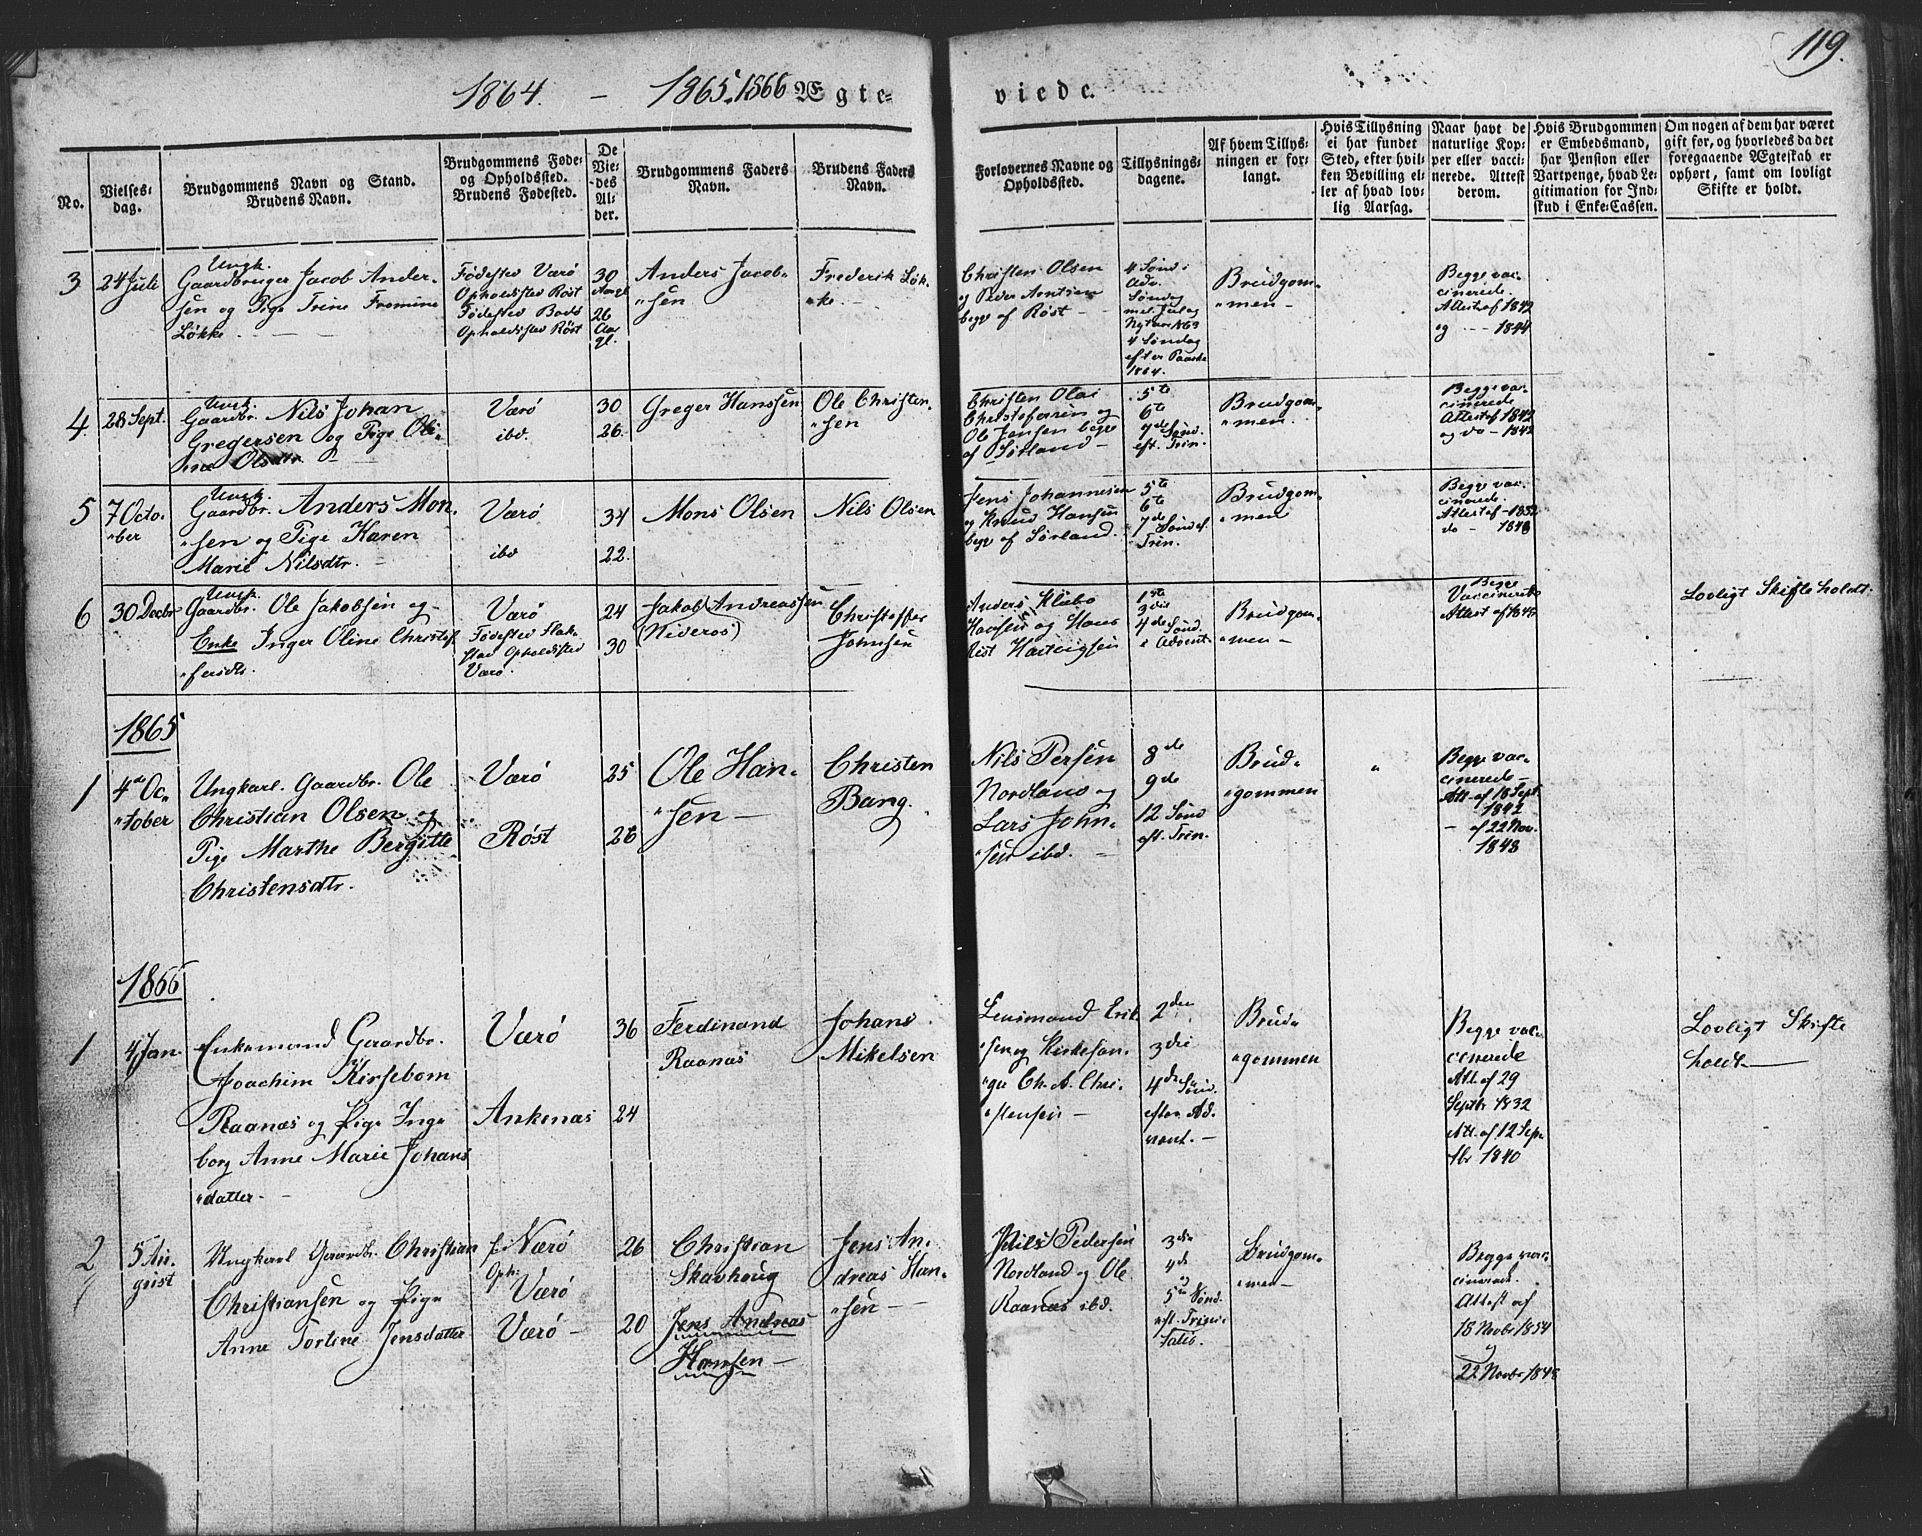 119.
1864. – 1865. 1866 Ægte-
viede.
No.
Vielses-
dag.
Brudgommens Navn og Stand.
Brudens Navn.
Brudgommens Føde-
og Opholdssted.
Brudens Fødested.
De
Vie-
des
Al-
der.
Brudgommens Faders
Navn.
Brudens Faders
Navn.
Forlovernes Navne og
Opholdssted.
Tillysnings-
dagene.
Af hvem Tillys-
ningen er for-
langt.
Hvis Tillysning
ei har fundet
Sted, efter hvil-
ken Bevilling el-
ler af hvad lov-
lig Aarsag.
Naar havt de
naturlige Kop-
per eller vacci-
nerede. Attest
derom.
Hvis Brudgommen
er Embedsmand,
har Pension eller
Vartpenge, hvad Le-
gitimation for Ind-
skud i Enke-Cassen.
Om nogen af dem har været
gift før, og hvorledes da det
foregaaende Ægteskab er
ophørt, samt om lovligt
Skifte er holdt.
3
24 Juli
Ungk.
Gaardbruger Jacob Ander-
sen og Pige Trine Fromine
Løkke
Fødested Værö
Opholdssted Röst
Fødested Bodö
Opholdssted Röst
30
Aargl
26
Aar
gl.
Anders Jacob-
"sen
Frederik Løk-
"ke.
Christen Olsen
og Peder Arntsen
begge af Röst
4 Sönd i
Adv.
Söndag
mel. Jul og
Nytaar 1863
4 Söndag
efter Paaske
1864.
Brudgom-
"men
Begge vac-
cinerede
Attest af 1842
og 1844
4.
28 Sept.
Ungk.
Gaardbr. Nils Johan
Gregersen og Pige Oli-
ne Olsdtr.
Værö
ibd.
30
26.
Greger Hanssen
Ole Christen-
"sen
Christen Olai
Christofersen og
Ole Jensen begge
af Sörland
5te
6te
7de Sönd.
eft. Trin.
Brudgom-
"men.
Begge vac-
cinerede
Attest af 1842
og do 1842
5
7 Octo-
"ber
Ungk.
Gaardbr. Anders Mon-
"sen og Pige Karen
Marie Nilsdtr.
Værö
ibd
34
22.
Mons Olsen
Nils Olsen
Jens Johannesen
og Knud Hansen
begge af Sörland.
5te
6te
7de Sönd ef.
Trin.
Brudgom-
"men
Begge vac-
cinerede.
Attest af 1832
do 1848
6
30 Decbr
Ungk.
Gaardbr. Ole Jakobsen og
Enke Inger Oline Christof-
"fersdtr.
Værö
Fødested Flak-
stad Opholdssted
Værö.
24
30
Jakob Andreassen
Christoffer
Johnsen
Anders Klæbo
Hansen og Hans
Rist Hartvigsen
1ste
3die
4de Sönd
i Advent
Brudgom-
"men
Begge
Vaccinerede
Attest af 1848
Lovligt Skifte holdt.
1865
1
4de Oc-
"tober
Ungkarl. Gaardbr. Ole
Christian Olsen og
Pige Marthe Bergitte
Christensdtr.
Værö
Röst
25
26
Ole Han-
"sen
Christen
Bang.
Nils Persen
Nordland og
Lars John-
"sen ibd.
8de
9de
12 Sönd
eft. Trin.
Brud-
"gommen
"
Begge vac-
cinerede
Att. af 18 Sept
1842
af 22 Nov.
1848
1866
1
4 Jan.
Enkemand Gaardbr.
Joachim Kirsebom
Raanæs og Pige Inge
borg Anne Marie Johans
"datter
Værö
Ankenæs
36
24
Ferdinand
Raanæs
Johans
Mikelsen
Lensmand Erik-
"sen og Kirkesan-
"ger Ch. A. Chri-
"stensen
2den
3die
4de Sönd.
efter Ad-
vent.
Brud-
"gommen
Begge vac-
cinerede
Att. af 29
Septbr 1832
Att. af 12 Sep-
tbr 1840
Lovligt Skifte
holdt
2
5 Au-
gust
Ungkarl Gaardbr. Christian
Christiansen og Pige
Anne Tortine Jensdatter
f. Værö
Oph.
Værö
Værö
26
20
Christian
Skavhoug
Jens Andreas
Hansen
Jens An-
dreas Han-
"sen
Nils Pedersen
Nordland og Ole
Raanæs ibd.
3die
4de
5te Sönd.
eft. Trini-
tatis.
Brudgom-
"men
Begge vac-
cinerede.
Attest af
18 Novbr 1854
og
22 Novbr 1848